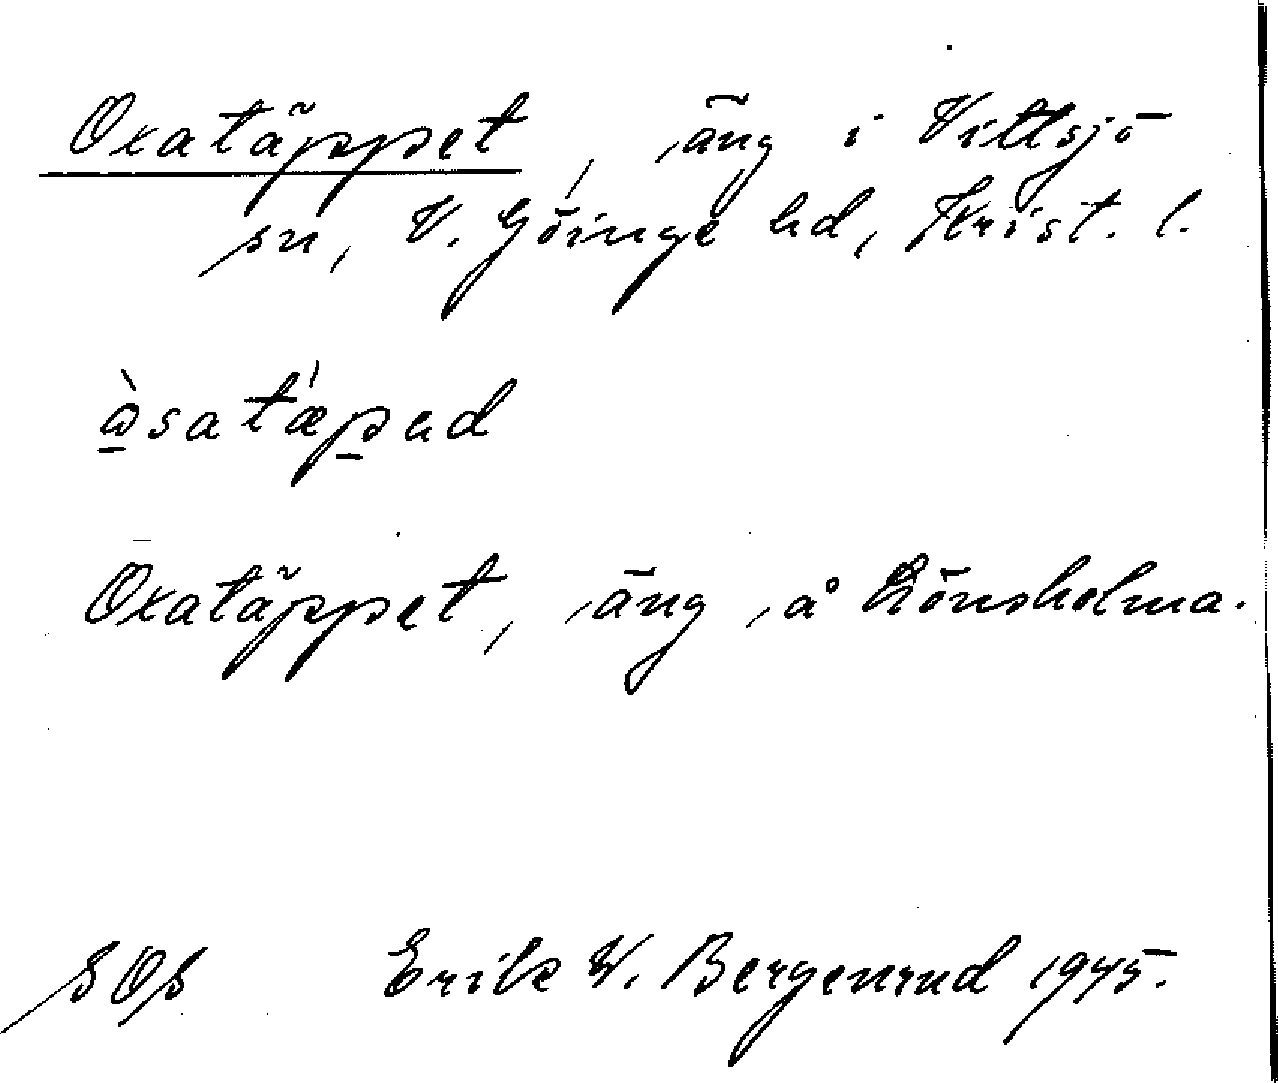 Oxatäppet, äng i Vittsjö
sn, V. Göinge hd, Krist. l.
Oxatäppet, äng å Lönsholma.
SOS Erik W. Bergenrud 1945.